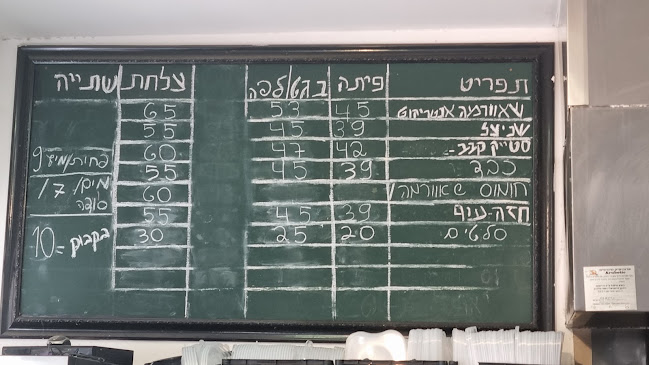 תפריט פיתה בגט/לפה צלחת שתייה
שאוורמה אנטריקוט 45 53 65
שניצל 39 45 55
סטייק קבב 42 47 60
כבד 39 45 55
חומוס שאוורמה/ 60
חזה עוף 39 45 55
סלטים 20 25 30
פחית/מיץ 9
מים/ 7
סודה
בקבוק = 10